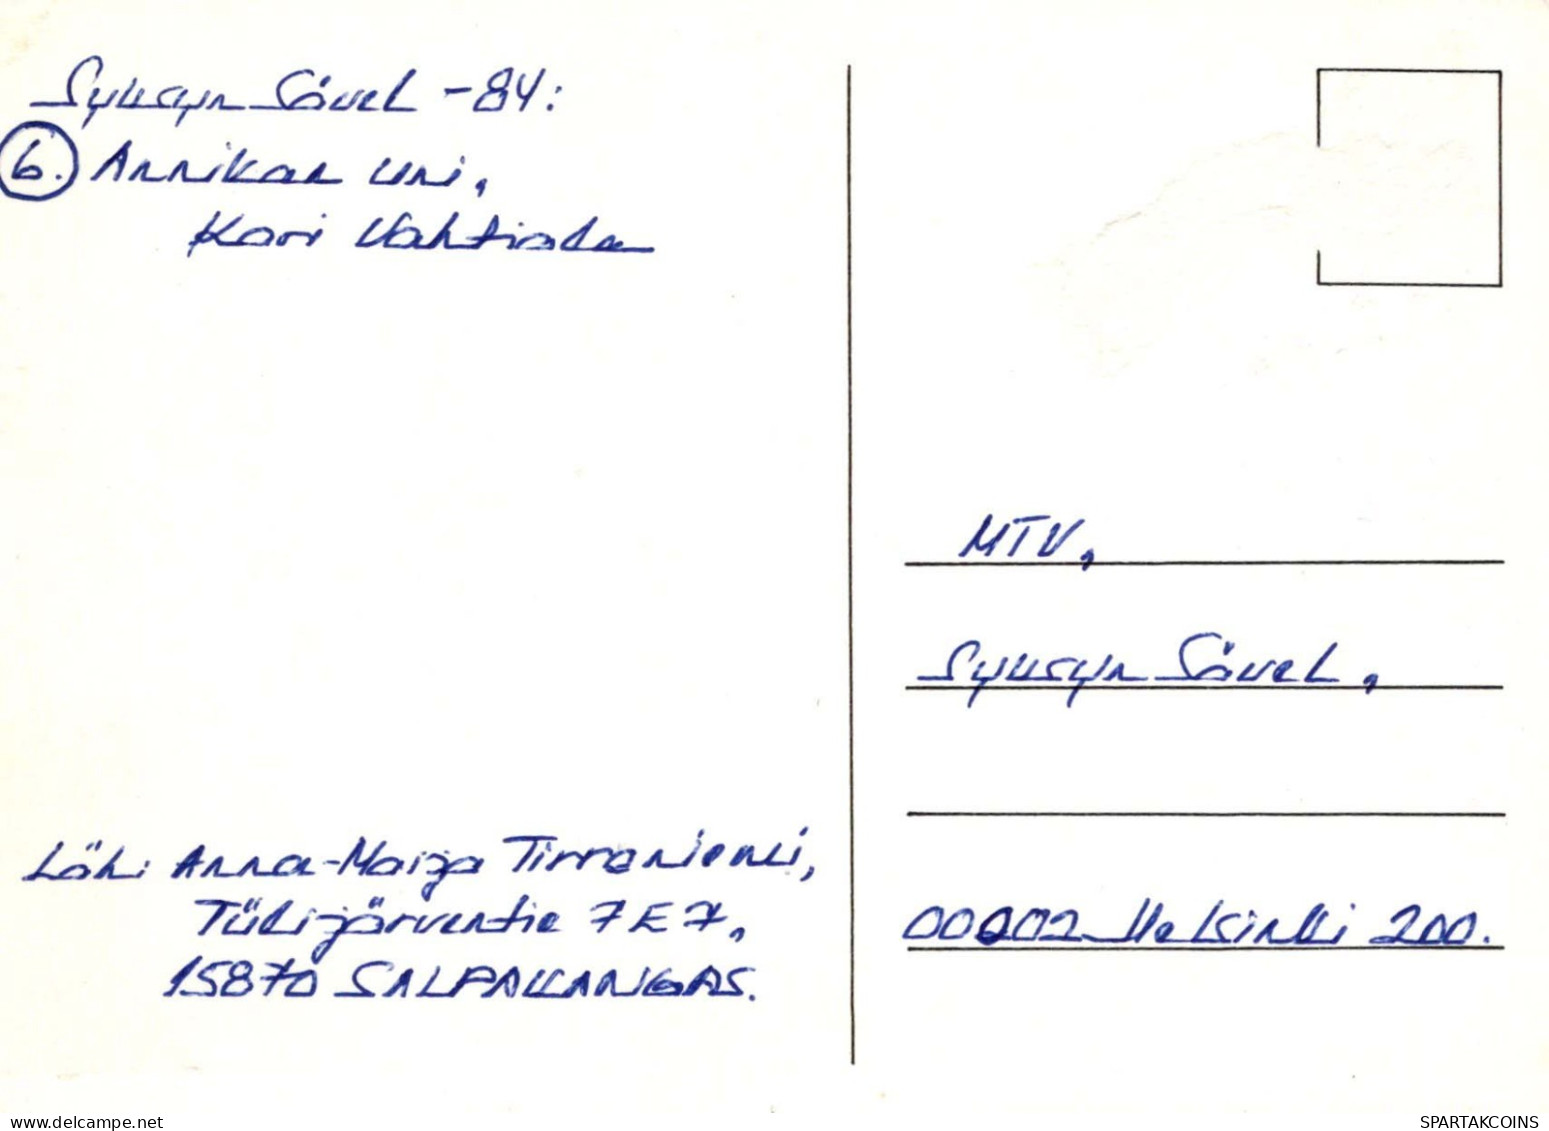 Syksyn Sävel -84:
6. Annikan uni,
Kari Vahtiala
Läh: Anna-Maija Tirraniemi,
Tükijärventie 7 E 7,
15870 SALPAKANGAS.
MTV,
Syksyn Sävel,
00002 Helsinki 200.
delcampe.net
SPARTAKCOINS